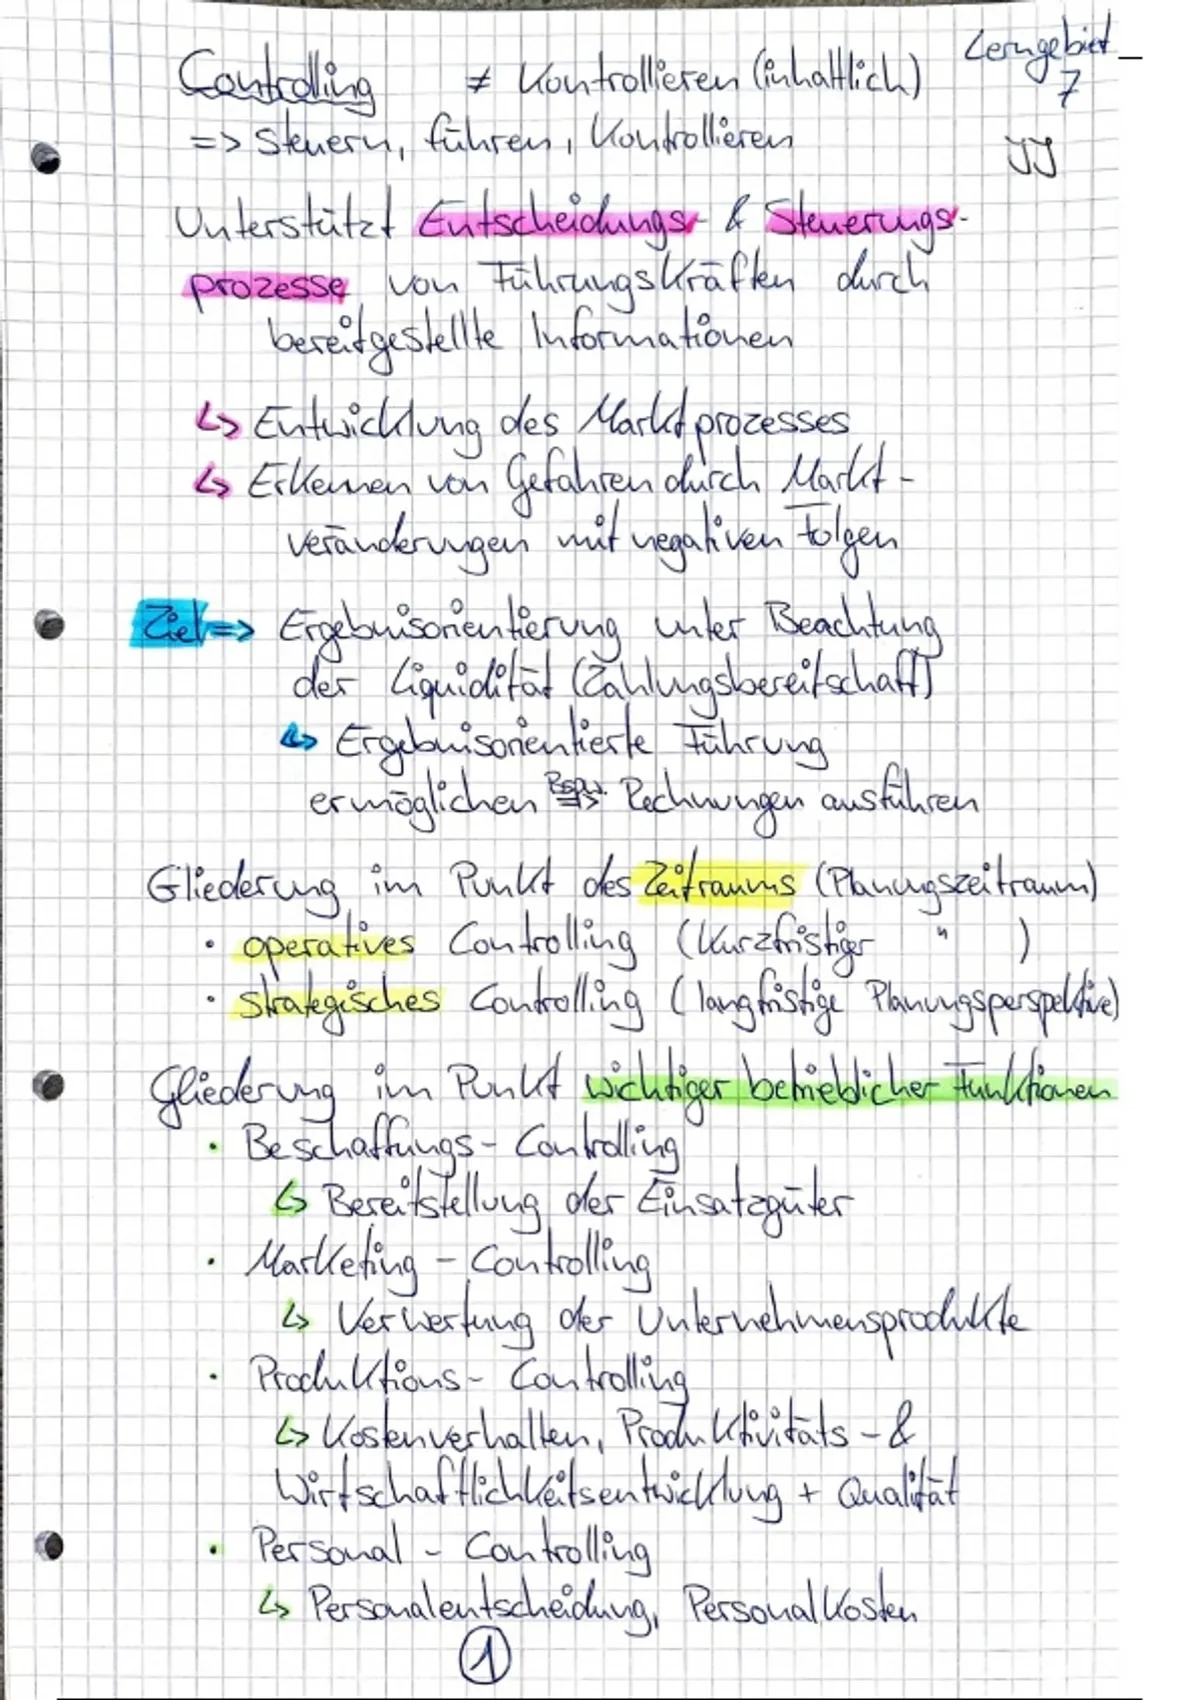 Controlling ≠ Kontrollieren (inhaltlich) Lerngebiet
7
=> Steuern, führen, Kontrollieren
JJ
Unterstützt Entscheidungs- & Steuerungs-
prozesse von Führungskräften durch
bereitgestellte Informationen
↳ Entwicklung des Marktprozesses
↳ Erkennen von Gefahren durch Markt-
veränderungen mit negativen Folgen
Ziel => Ergebnisorientierung unter Beachtung
der Liquidität (Zahlungsbereitschaft)
↳ Ergebnisorientierte Führung
ermöglichen Bspw. => Rechnungen ausführen
Gliederung im Punkt des Zeitraums (Planungszeitraum)
• operatives Controlling (Kurzfristiger " )
• strategisches Controlling (langfristige Planungsperspektive)
Gliederung im Punkt wichtiger betrieblicher Funktionen
• Beschaffungs-Controlling
↳ Bereitstellung der Einsatzgüter
• Marketing - Controlling
↳ Verwertung der Unternehmensprodukte
• Produktions- Controlling
↳ Kostenverhalten, Produktivitäts- &
Wirtschaftlichkeitsentwicklung + Qualität
• Personal - Controlling
↳ Personalentscheidung, Personalkosten
1